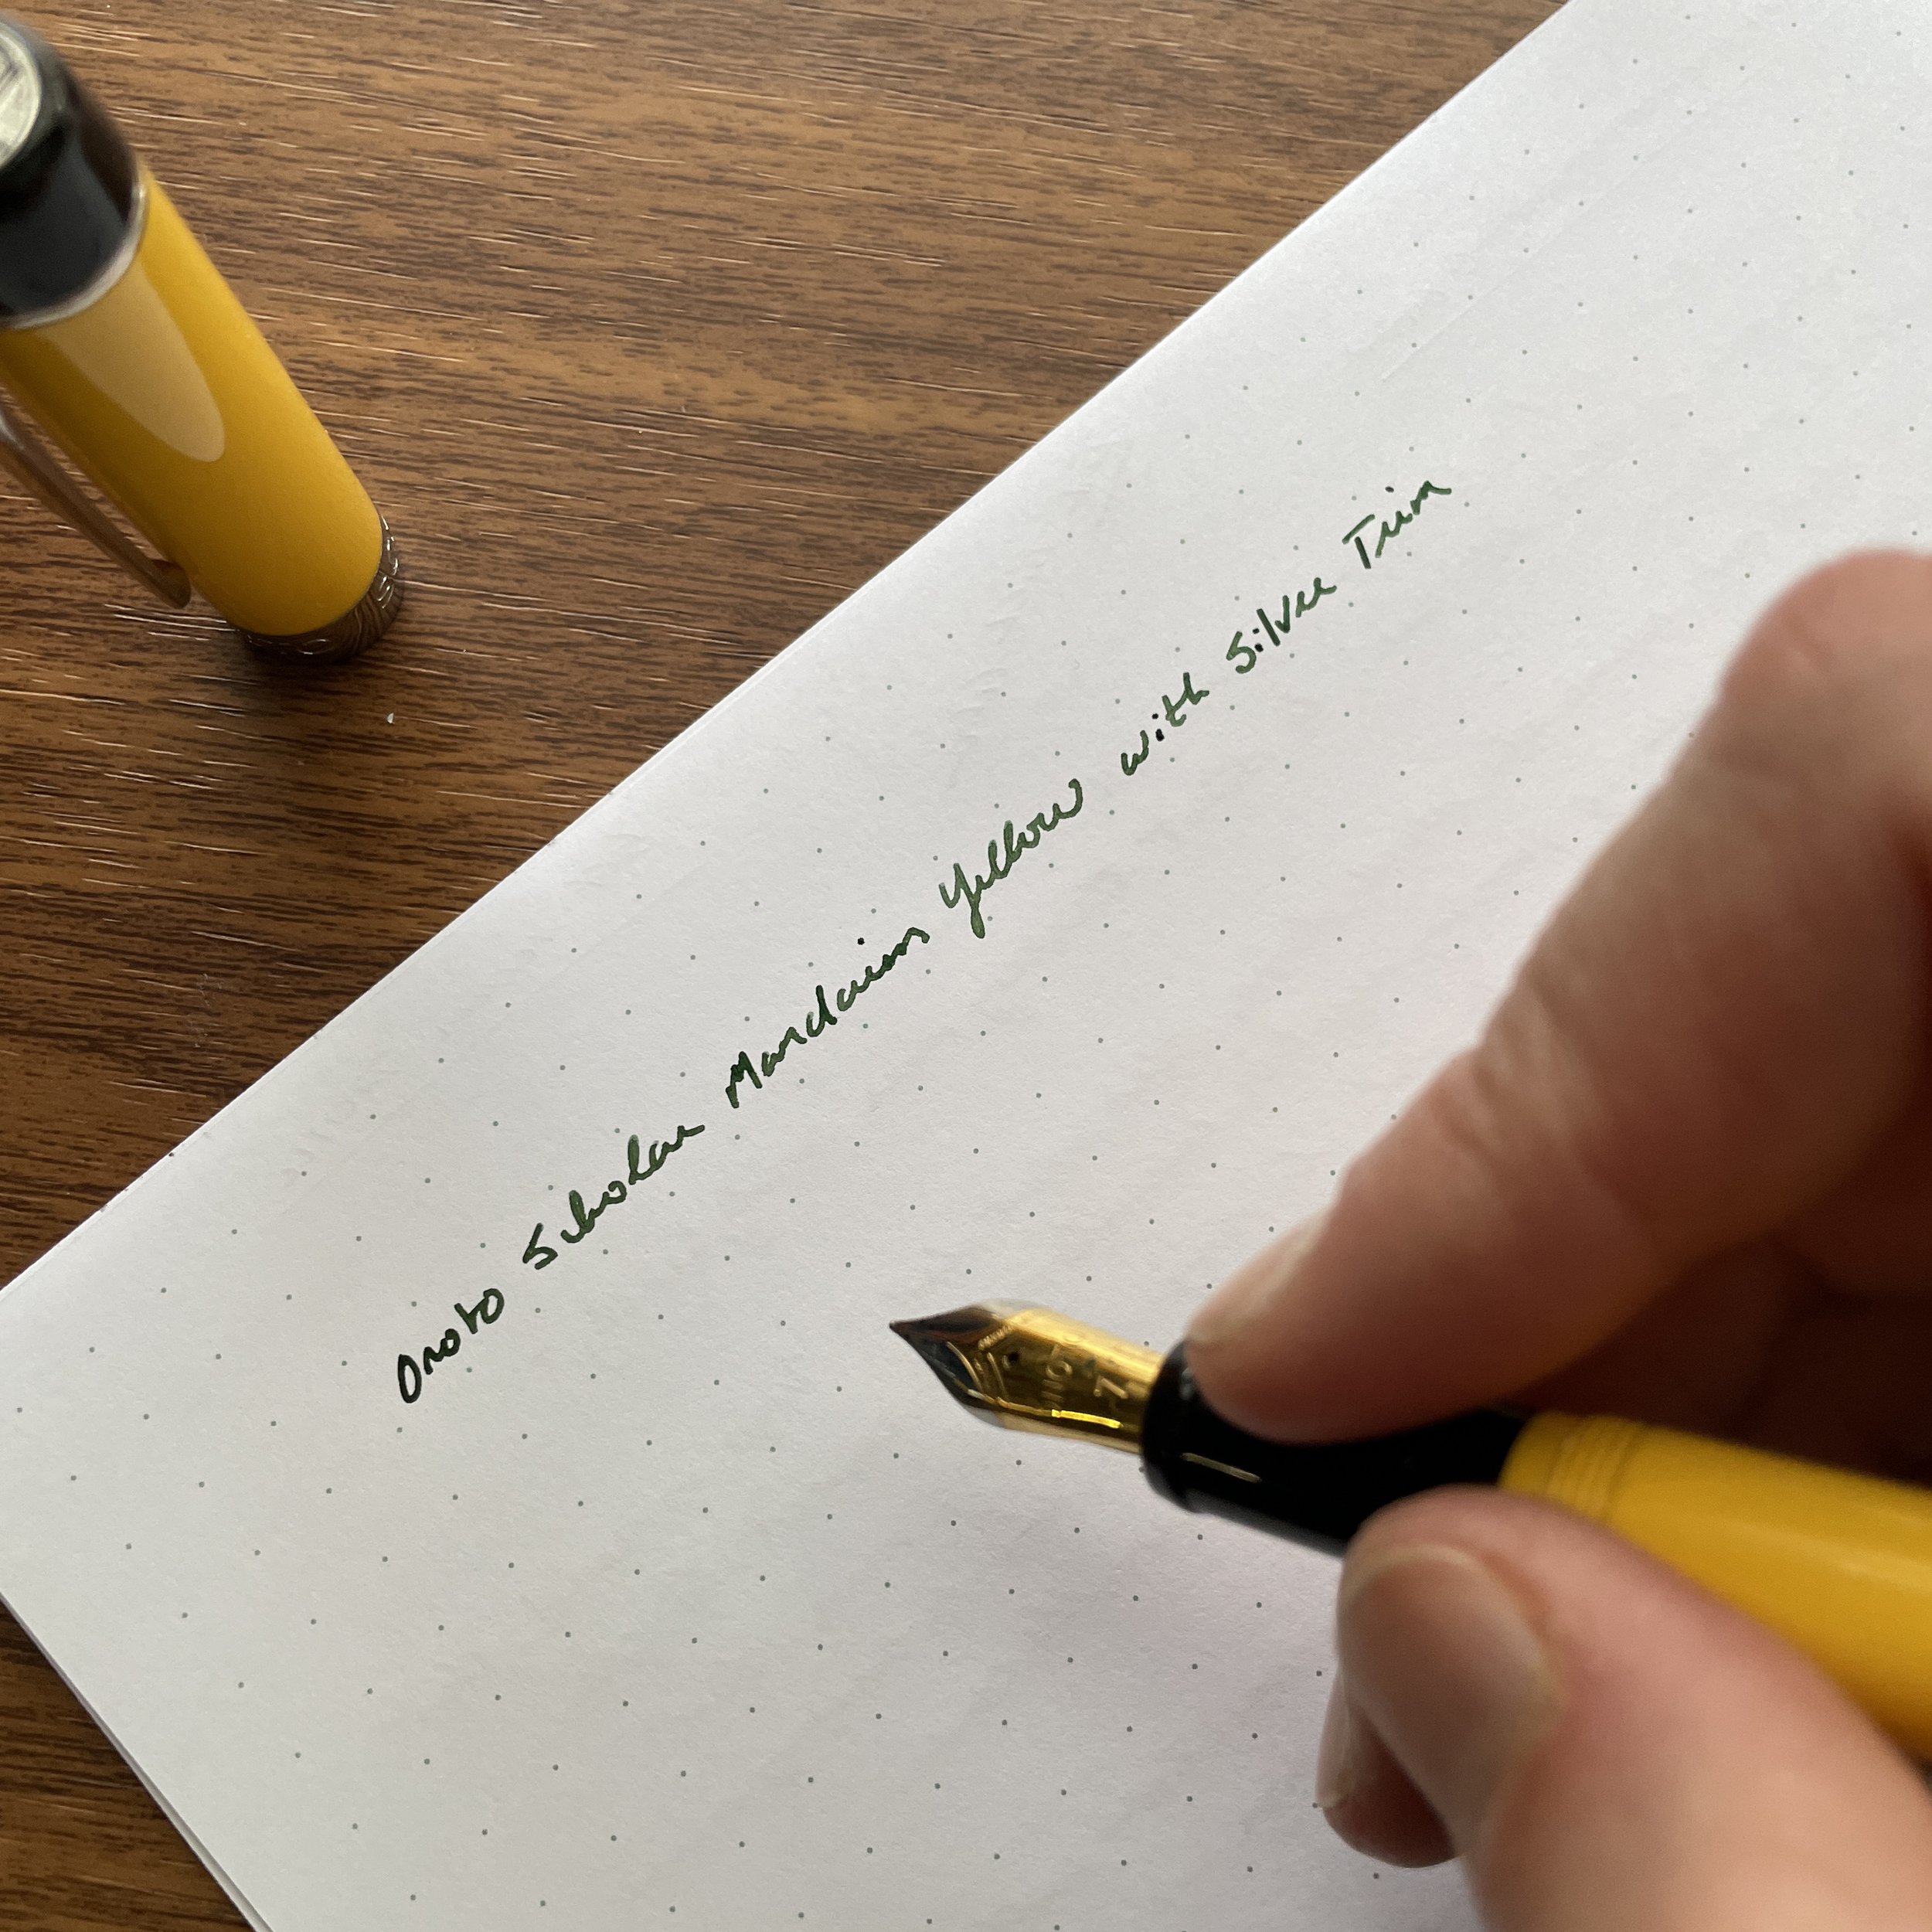 Onoto Scholar Mandarin Yellow with Silver Trim